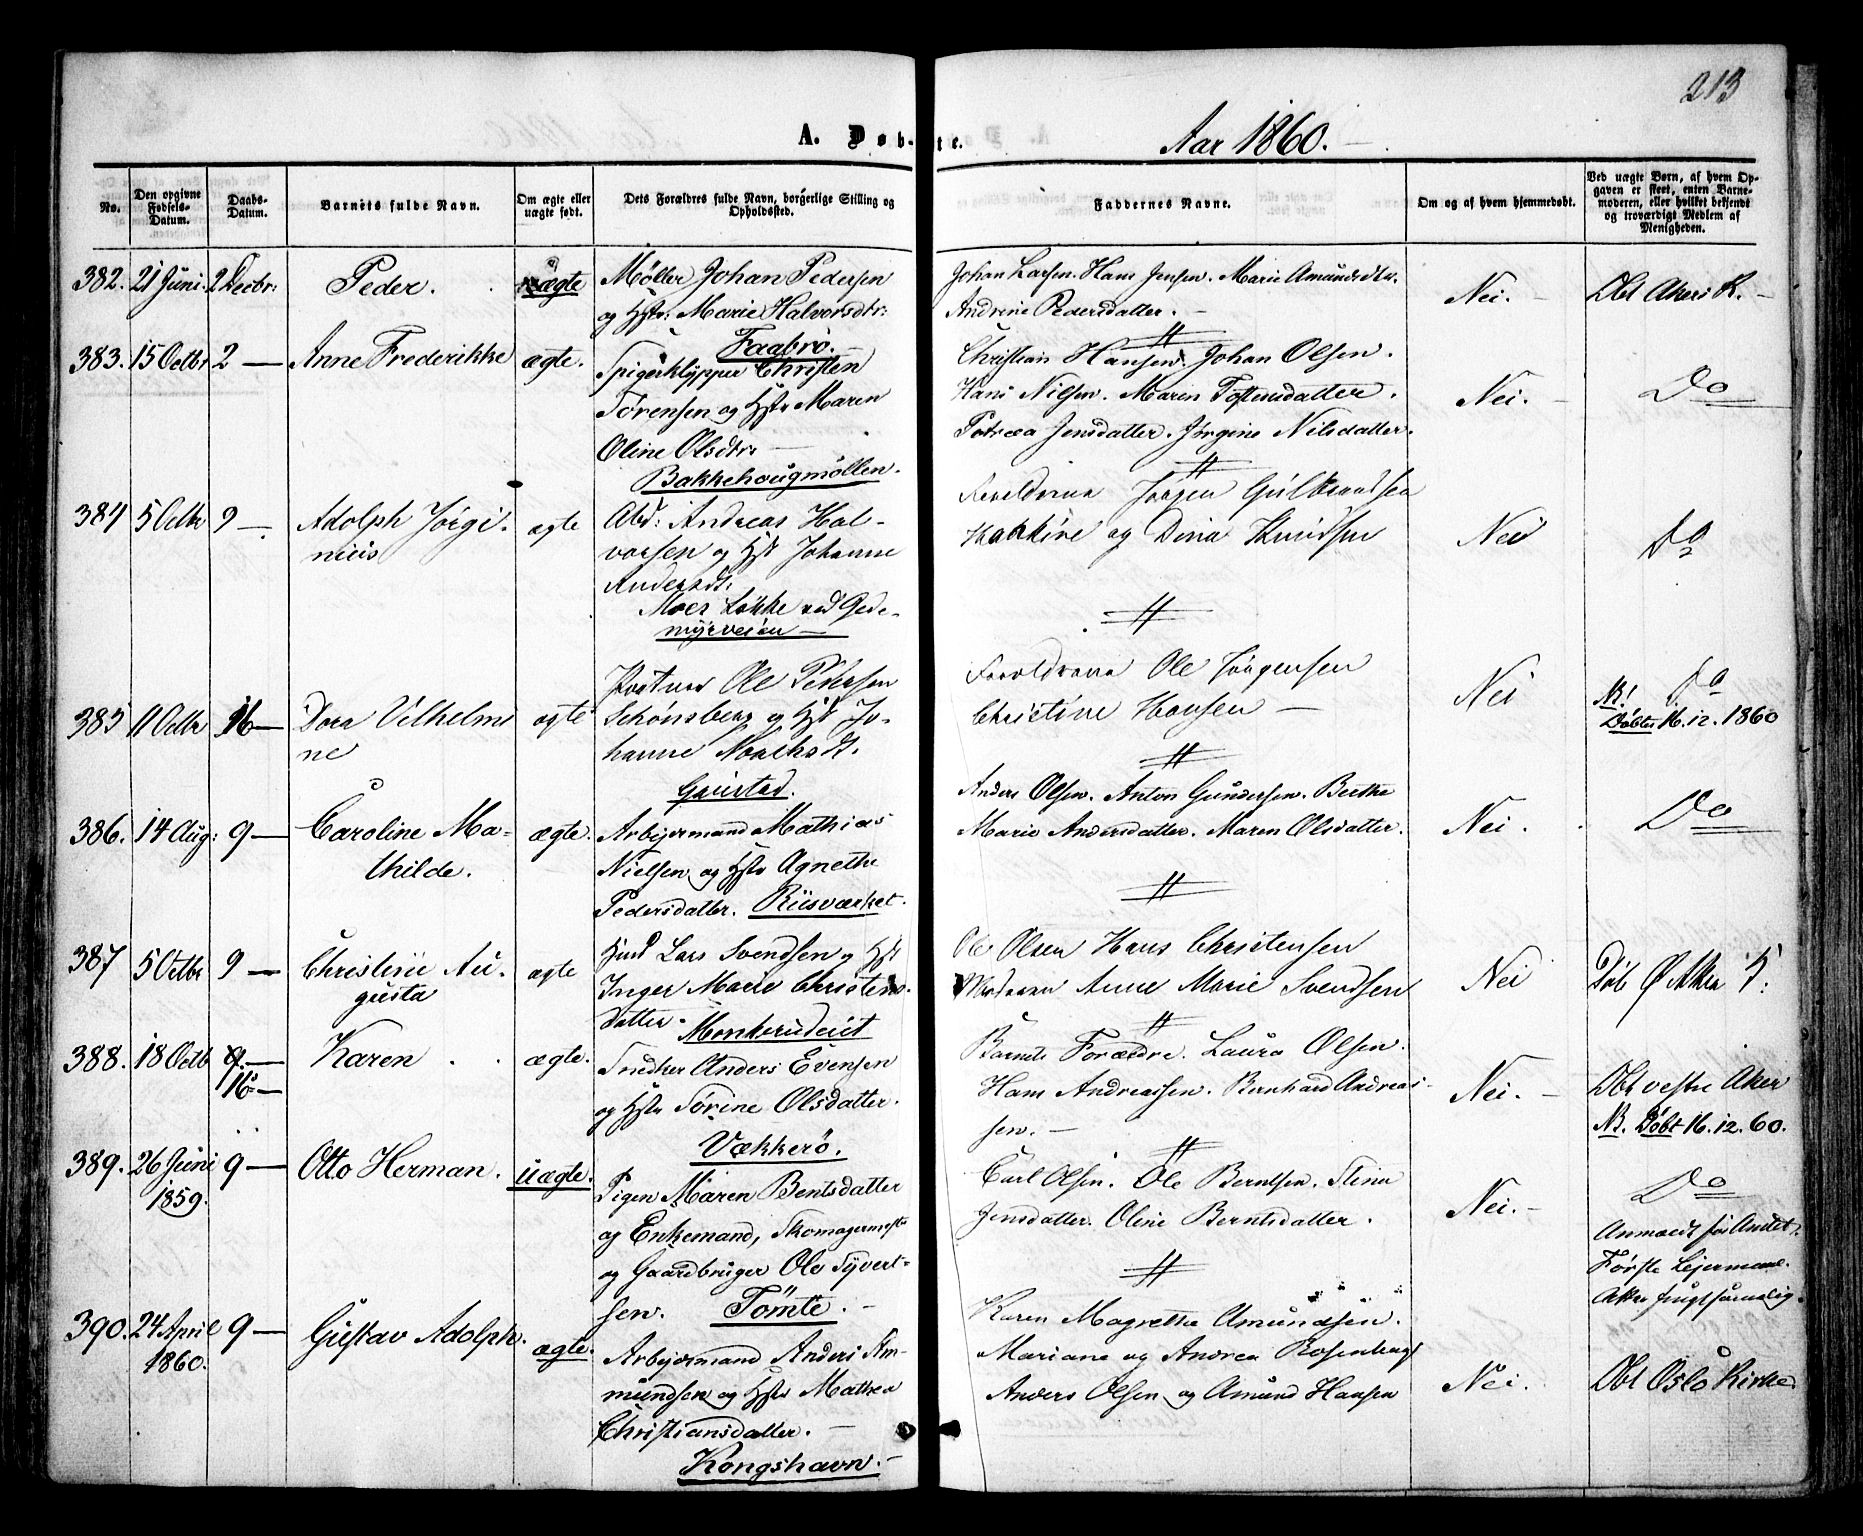 213
A. Døb-
te.
Aar 1860.
No.
Den opgivne Fødsels-Datum.
Daabs-Datum.
Barnets fulde Navn.
Om ægte eller uægte født.
Dets Forældres fulde Navn, borgerlige Stilling og Opholdssted.
Faddernes Navne.
Om og af hvem hjemmedøbt.
Ved uægte Børn, af hvem Opgaven er skeet, enten Barnemoderen, eller hvilket bekjendt og troværdigt Medlem af Menigheden.
382. 21 Juni. 2 Decbr: Peder. uægte
Møller Johan Pedersen
og Hstr: Marie Halvorsdtr:
Faabrø.
Johan Larsen. Hans Jensen. Marie Amundsdtr.
Andrine Pedersdatter. -
Nei. -
Dbt Akers K. -
383. 15 Octbr 2 — Anne Frederikke ægte.
Spigerklypper Christen
Sørensen og Hstr Maren
Oline Olsdtr: —
Bakkehougmøllen.
Christian Hansen. Johan Olsen.
Hans Nilsen. Maren Tostensdatter.
Petrea Jensdatter. Jørgine Nilsdatter.
Nei. -
Do
384 5 Octbr 9 — Adolph Jørgi-
nius
ægte
Abd: Andreas Hal-
vorsen og Hst Johanne
Andersdt.
Moes Løkke ved Gede-
myrveien —
Forældrene Jørgen Gulbrandsen
og Dina Knudsen
Nei
Do
385 11 Octbr 16 — Dora Vilhelmi
ne
ægte
Ole Petersen
Schønsberg og Hst Jo-
hanne
Gaustad.
Forældrene Ole Jørgensen
Christine Hansen —
Nei
Do
NB!
Døbt 16.12.1860
386. 14 Aug: 9 — Caroline Ma-
thilde.
ægte.
Arbejdsmand Mathias
Nielsen og Hstr Agnethe
Pedersdatter. Riisværket.
Anders Olsen. Anton Gundersen. Berthe
Marie Andersdatter. Maren Olsdatter.
Nei.
Do
387 5 Octbr 9 — Christine Au-
gusta
ægte
Hmd Lars Svendsen og Hst
Inger Marie Christens-
datter. Monkerudeiet
Ole Olsen Hans Christensen
Moderen Anne Marie Svendsen
Nei
Døb Ø Aker K:
388. 18 Octb 9. —
16 —
Karen ægte.
Snedker Anders Evensen
og Hstr Sørine Olsdatter.
Vækkerø.
Barnets Forældre. Laura Olsen.
Hans Andreassen. Bernhard Andreas-
sen. -
Nei. -
Dbt vestre Aker
NB. Døbt 16.12.60.
389. 26 Juni
1859.
9 — Otto Herman. uægte.
Pigen Maren Bentsdatter
og Enkemand, Skomagermestr
og Gaardbruger Ole Syvert-
sen. Tømte. -
Carl Olsen. Ole Berntsen. Stina
Jensdatter. Oline Berntsdatter.
Nei. -
Do
Anmældt for Andet.
Første Lejermaal.
390. 24 April
1860.
9 — Gustav Adolph. ægte.
Arbejdsmand Anders Am-
mundsen og Hstr Mathea
Christiansdatter. —
Kongshavn. -
Karen Magrethe Amundsen.
Mariane og Andrea Rosenberg
Anders Olsen og Amund Hansen
Nei.
Dbt Oslo Kirke.